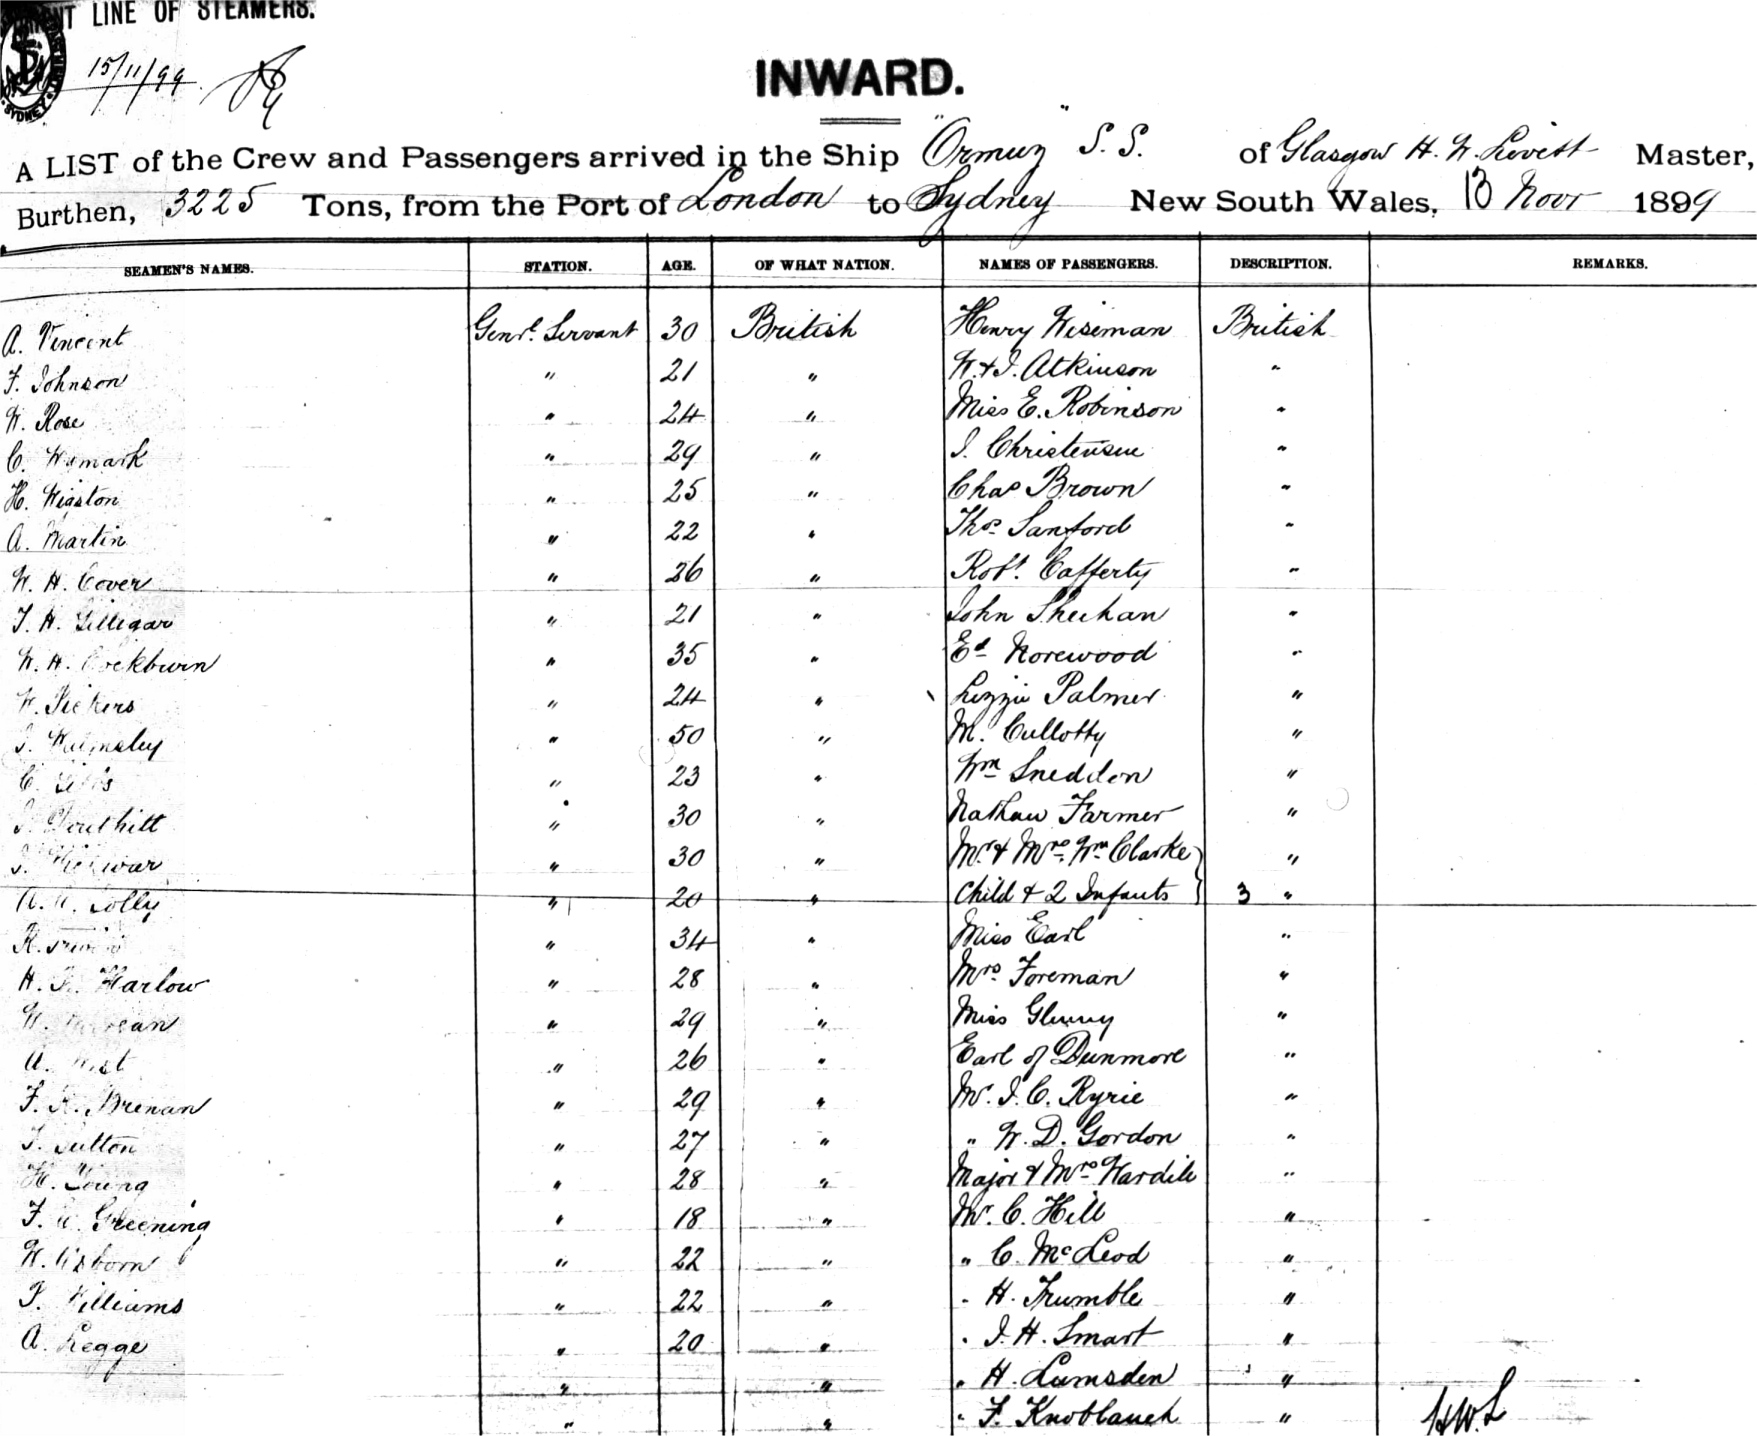 LINE OF STEAMERS.
SYDNEY
15/11/99
INWARD.
A LIST of the Crew and Passengers arrived in the Ship "Ormuz" S.S. of Glasgow H. W. Master,
Burthen, 3225 Tons, from the Port of London to Sydney New South Wales, 13 Novr 1899
SEAMEN'S NAMES. STATION. AGE. OF WHAT NATION. NAMES OF PASSENGERS. DESCRIPTION. REMARKS.
A. Vincent Genrl. Servant 30 British Henry Wiseman British
F. Johnson " 21 " W. & J. Atkinson "
W. Rose " 24 " Miss E. Robinson "
C. Wymark " 29 " J. Christensen "
H. Wigston " 25 " Chas Brown "
A. Martin " 22 " Thos. Sanford "
W. H. Cover " 26 " Robt. Cafferty "
T. H. " 21 " John Sheehan "
W. H. Cockburn " 35 " Ed Norewood "
W. " 24 " Lizzie Palmer "
J. Walmsley " 50 " M. Cullotty "
C. " 23 " Wm Sneddon "
J. Douthitt " 30 " Nathan Farmer "
J. " 30 " Mr. & Mrs. Wm Clarke "
Jolly " 20 " Child & 2 Infants 3 "
R. " 34 " Miss Earl "
H. Harlow " 28 " Mrs. Foreman "
W. " 29 " Miss Glenny "
A. West " 26 " Earl of Dunmore "
F. Brenan " 29 " Mr. J. C. Ryrie "
Sutton " 27 " " W. D. Gordon "
H. Young " 28 " Major & Mrs Wardill "
F. Greening " 18 " Mr. C. Hill "
W. Osborn " 22 " " C. McLeod "
Williams " 22 " " H. Trumble "
A. Legge " 20 " " J. H. Smart "
" " " H. Lumsden "
" " " F. Knoblauch "
HWL